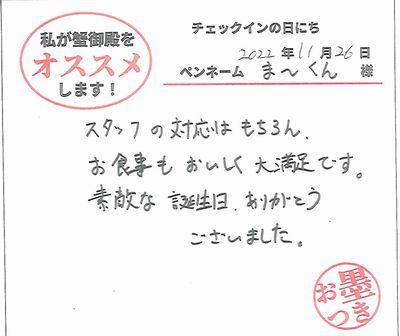 私が蟹御殿を
オススメ
します！
チェックインの日にち
2022年11月26日
ペンネーム ま〜くん 様
スタッフの対応はもちろん、
お食事もおいしく大満足です。
素敵な誕生日、ありがとう
ございました。
お墨つき